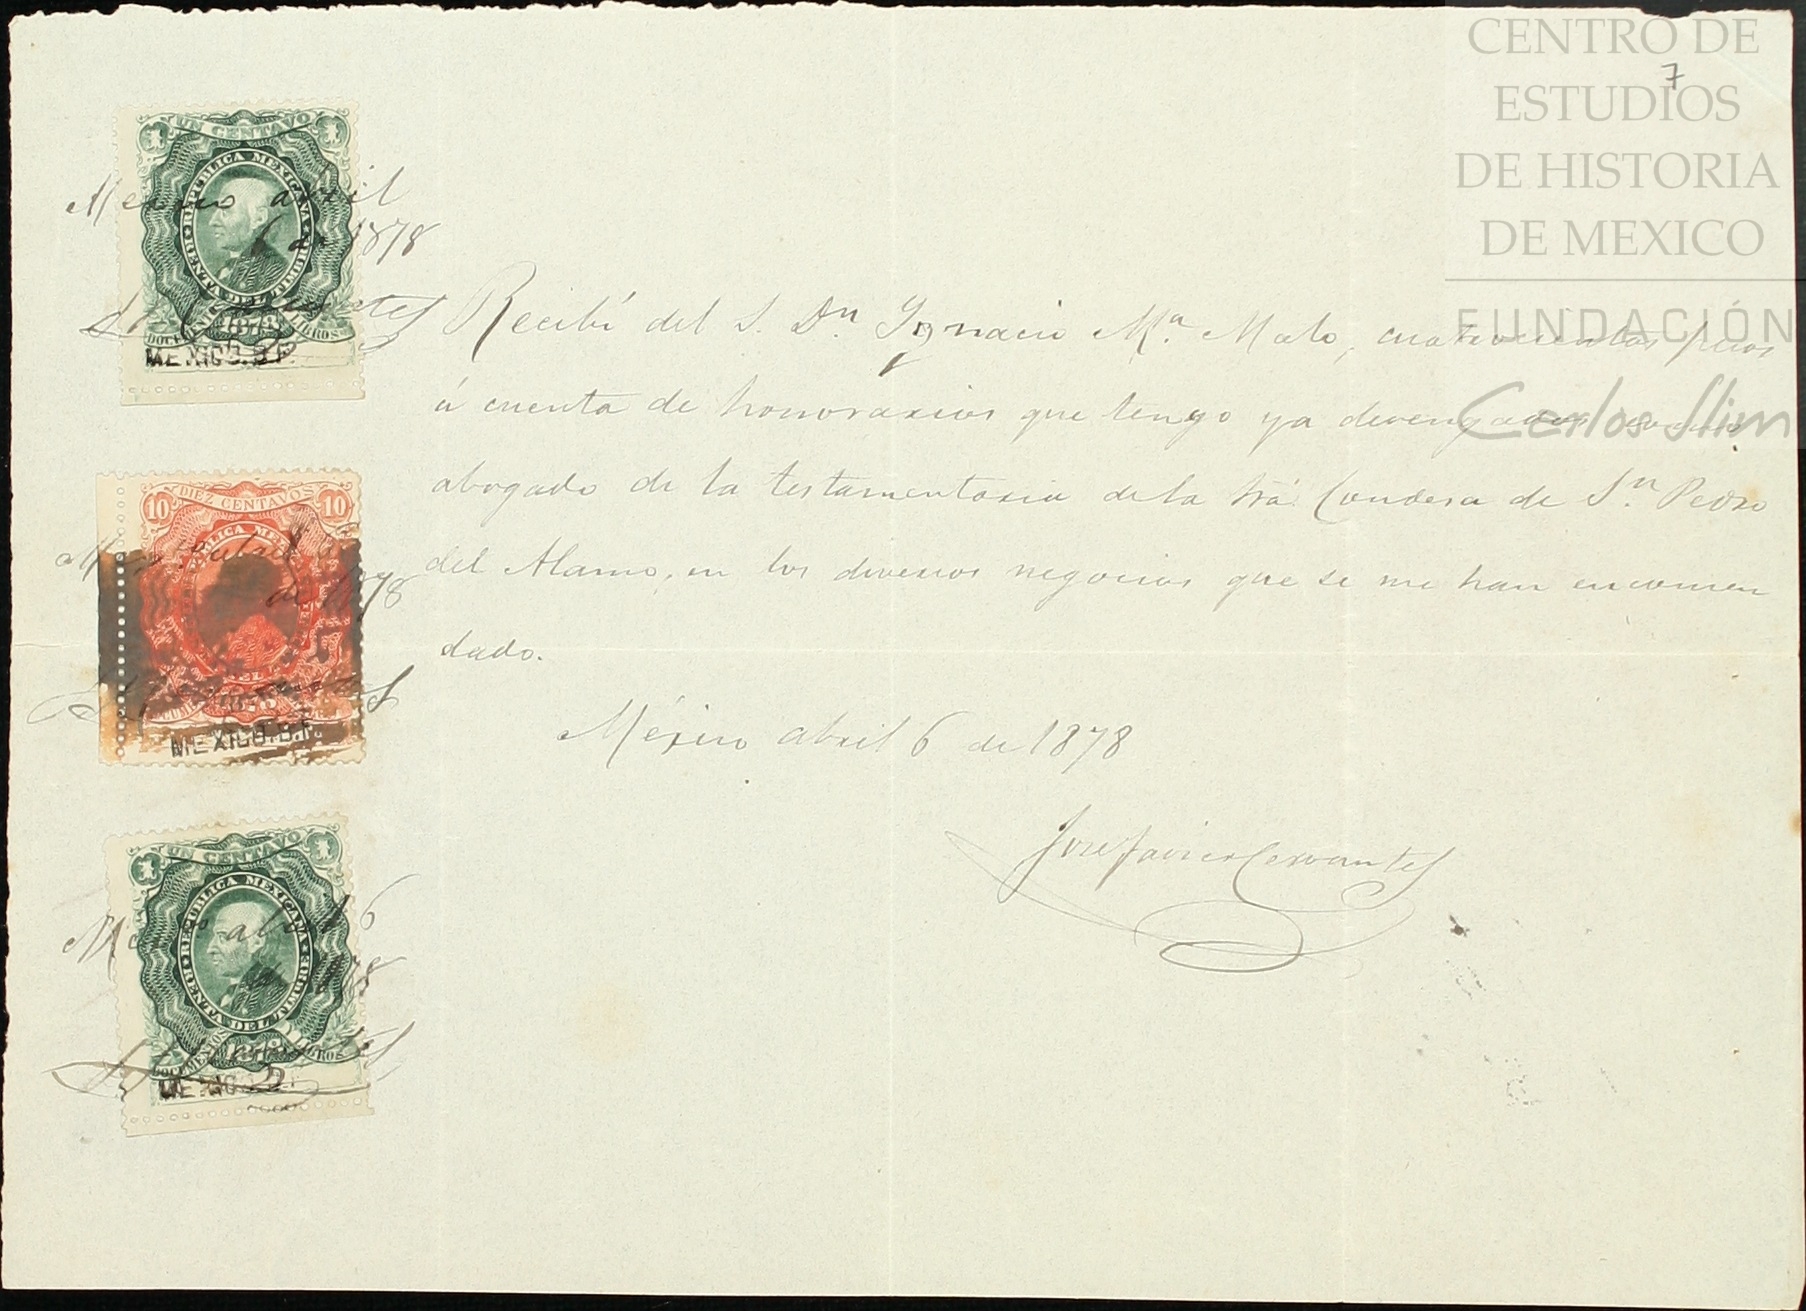 CENTRO DE
ESTUDIOS
DE HISTORIA
DE MEXICO
FUNDACIÓN
Carlos Slim
7
UN CENTAVO
1 1
REPUBLICA MEXICANA
RENTA DEL TIMBRE
DOCUMENTOS 1878 LIBROS
MEXICO. D.F.
Mexico abril
6 de 1878
Recibí del S. Dn Ygnacio Ma. Malo, cuatrocientos pesos
á cuenta de honorarios que tengo ya devengados como
abogado de la testamentaria de la Srá. Condesa de Sn. Pedro
del Alamo, en los diversos negocios que se me han encomen
dado.
México abril 6 de 1878
José Javier Cervantes
DIEZ CENTAVOS
10 10
de 1878
MEXICO. D.F.
UN CENTAVO
1 1
REPUBLICA MEXICANA
RENTA DEL TIMBRE
DOCUMENTOS 1878 LIBROS
Mexico abril 6
de 1878
MEXICO. D.F.